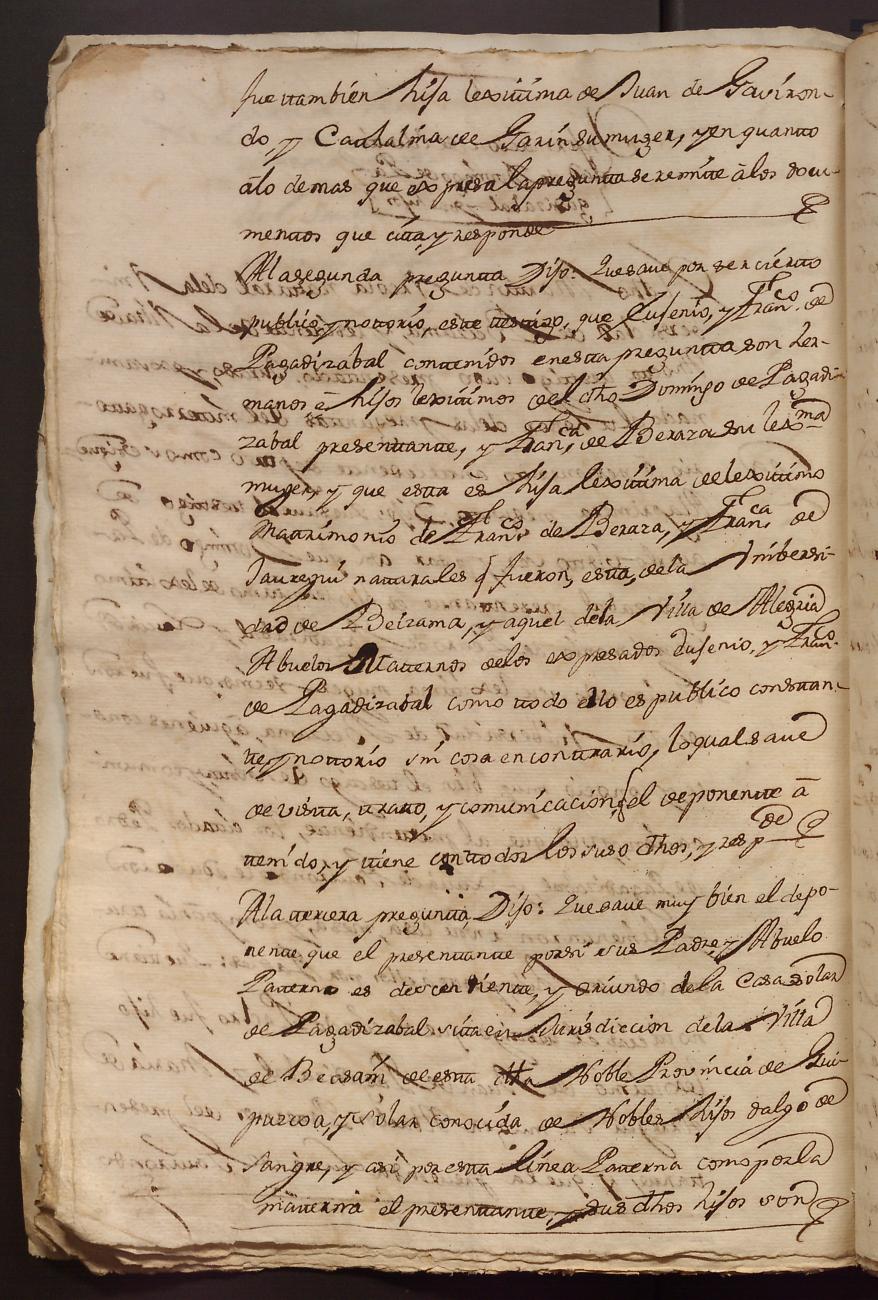 fue ttambien hija lexittima de Juan de Gaviron-
do, y Cathalina de Garin su muger, y en quantto
a lo demas que expresa la pregunta se remitte â los docu-
menttos que citta, y responde
A la segunda pregunta Dijo: Que save por ser cierto
publico, y nottorio, este testigo, que Eusenio, y Franco. de
Pagadizabal conttenidos en esta pregunta son her-
manos é hijos lexittimos del dho Domingo de Pagadi-
zabal presenttante, y Franca. de Beraza su lexma
muger, y que estta es hija lexittima de lexittimo
Mattrimonio de Franco. de Beraza, y Franca. de
Jauregui natturales q fueron, estta, de la Vnibersi-
dad de Beizama, y aquel de la Villa de Alegria
Abuelos Matternos de los expresados Eusenio, y Franco.
de Pagadizabal como ttodo ello es publico consttan-
te, y nottorio sin cosa en conttrario, lo qual save
de vistta, tratto, y comunicacion, q el deponentte â
ttenido, y ttiene con ttodos los suso dhos, y respde
A la ttercera pregunta, Dijo: Que save muy bien el depo-
nente que el presenttante por si sus Padre, y Abuelo
Patterno es descendiente, y oriundo de la Casa solar
de Pagadizabal sitta en Jurisdiccion de la Villa
de Beasain de estta dtta Noble Provincia de Gui-
puzcoa, y solar conocida de Nobles hijos dalgo de
sangre, y asi por estta linea Patterna como por la
matterna el presenttante, y sus dhos hijos son